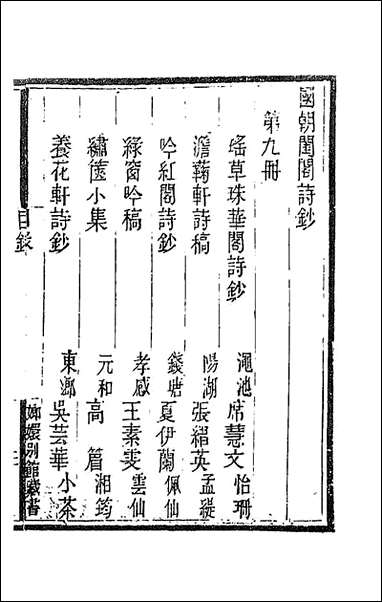 國朝閨閣詩鈔
第九冊
瑤草珠華閣詩鈔 澠池席慧文怡珊
澹蘜軒詩稿 陽湖張䌌英孟緹
吟紅閣詩鈔 錢塘夏伊蘭佩仙
綠窗吟稿 孝感王素雯雲仙
繡篋小集 元和高篃湘筠
養花軒詩鈔 東鄉吳芸華小茶
目錄
嫏嬛別館藏書